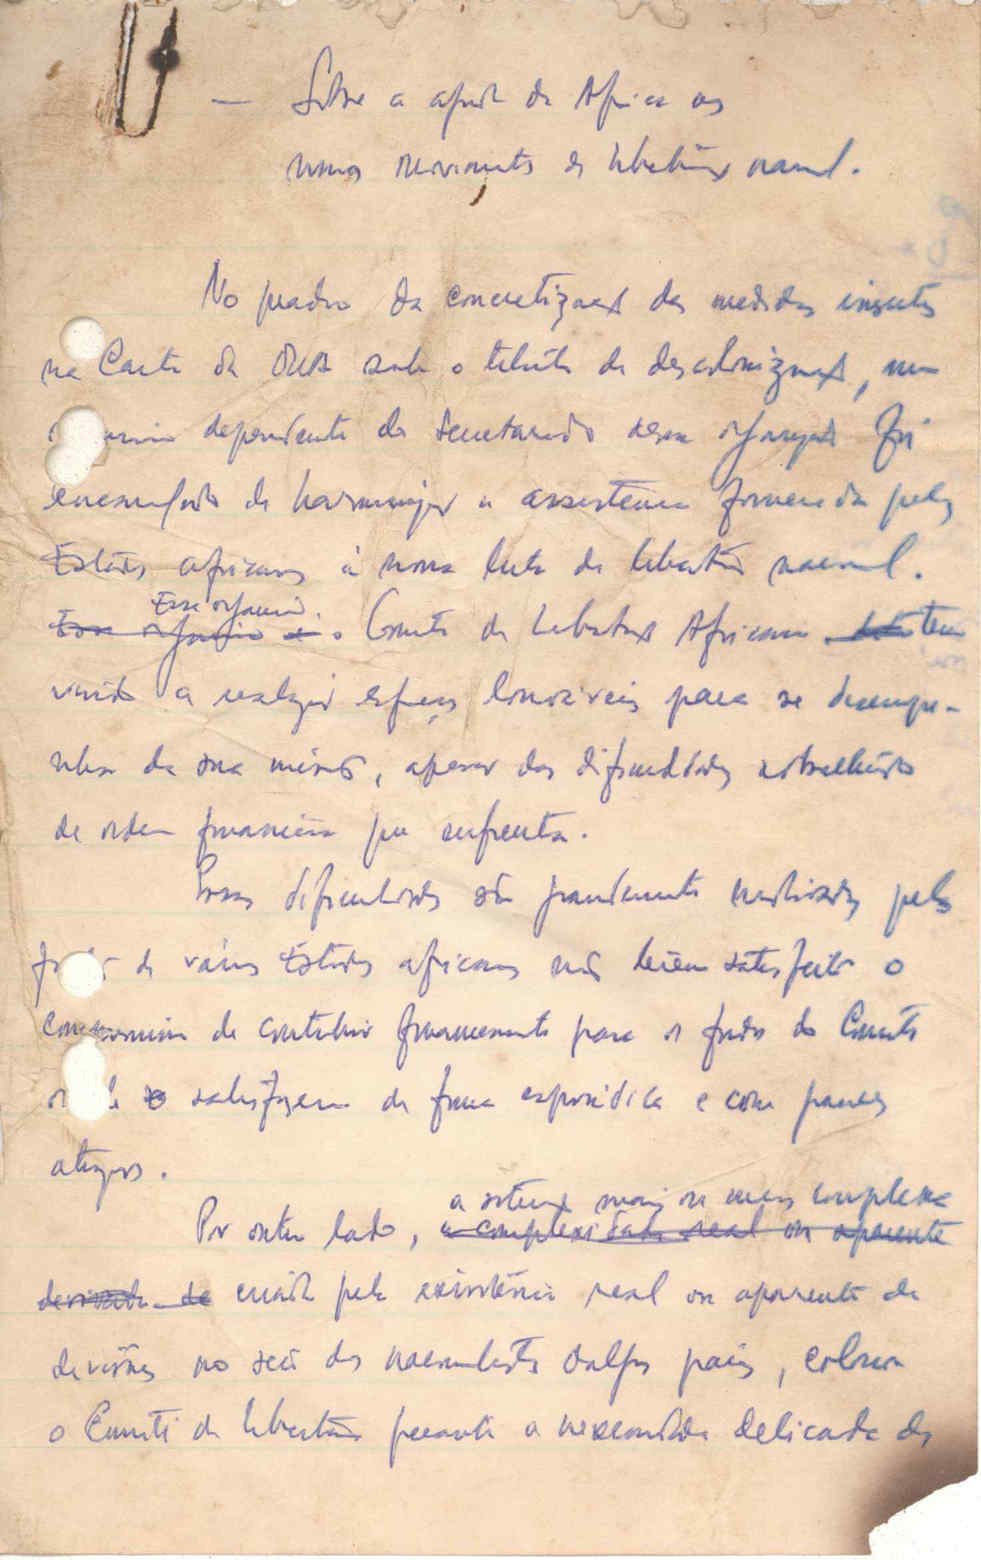 — Sobre a ajuda da Africa aos
nossos movimentos de libertação nacional.
No quadro da concretização das medidas insertas
na Carta da OUA sobre o da descolonização, um
dependente do Secretariado dessa organização foi
encarregado de harmonizar a assistência fornecida pelos
Estados africanos à nossa luta de libertação nacional.
Esse organismo,
o Comité de Libertação Africana tem
vindo a realizar esforços louváveis para se desempe-
nhar da sua missão, apesar das dificuldades
de ordem financeira que enfrenta.
Essas dificuldades são grandemente pelo
de vários Estados africanos não terem satisfeito o
compromisso de contribuir financeiramente para os fundos do Comité
o satisfazerem de forma esporádica e com grandes
atrasos.
a situação mais ou menos complexa
Por outro lado, a complexidade real ou aparente
derivada de criada pela existência real ou aparente de
divisões no seio dos nacionalistas dalguns países, coloca
o Comité de Libertação perante a necessidade delicada de